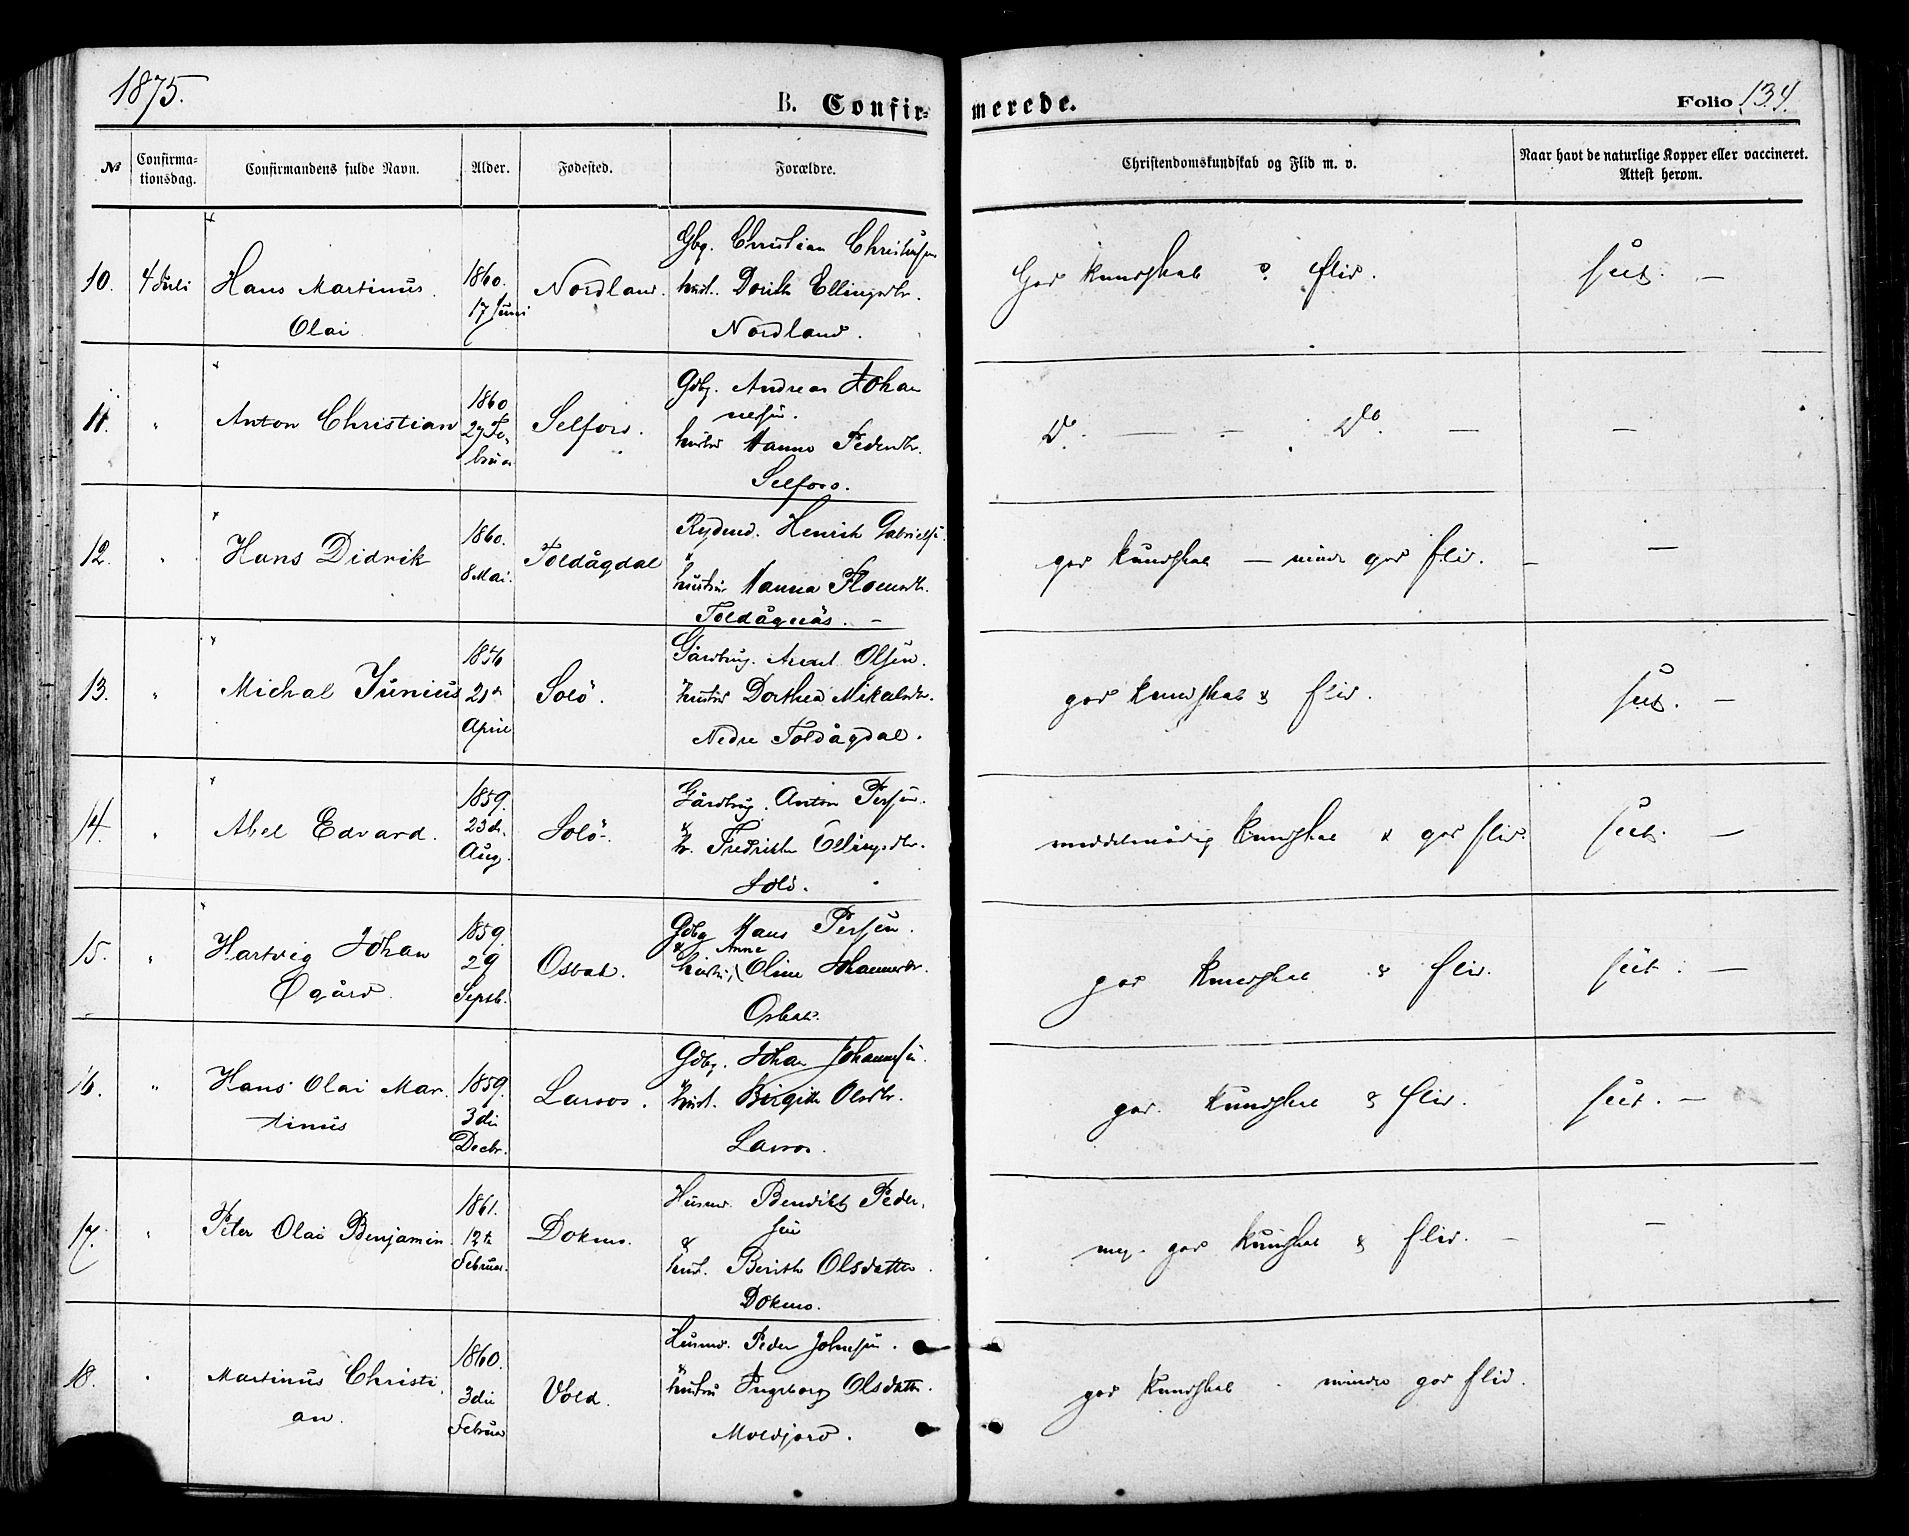 1875.
B. Confir-
merede.
Folio 134
№
Confirma-
tionsdag.
Confirmandens fulde Navn.
Alder.
Fødested.
Forældre.
Christendomskundskab og Flid m. v.
Naar havt de naturlige Kopper eller vaccineret.
Attest herom.
10. 4 Juli Hans Martinus
Olai
1860.
17 Juni
Nordland.
Gbg. Christian Christensen
hust. Dorith Ellingsdtr.
Nordland.
God kundskab & flid.
11. " Anton Christian
1860
27 Fe-
bruar
Selfors.
Gdbg. Andreas Johan
nesen.
hustru Hanna Pedersdtr.
Selfors.
Do. — — Do. —
—
12. " Hans Didrik
1860.
8 Mai.
Toldågdal
Rydnd. Henrik Gabrielsen.
&
hustru Hanna
Toldågnäs. —
god kundskab — mindre god flid. —
—
13. " Michal Junius
1856
21de
April
Solö.
Gårdbrug. Olsen.
hustru Dorthea Mikalsdtr.
Nedre Toldågdal.
god kundskab & flid.
—
14. " Abel Edvard.
1859.
23de
Aug.
Solö.
Gårdbrug. Anton Persen.
&
h. Fredrikke Ellingsdtr.
Solö.
middelmådig kundskab & god flid.
—
15. " Hartvig Johan
Ögård.
1859.
29
Septb.
Osbak.
Gdbg Hans Persen.
& Anne
hustru, Oline Johannesdtr.
Osbak.
god kundskab & flid.
—
16. " Hans Olai Mar
tinus
1859.
3die
Decbr.
Larsos.
Gdbg. Johan Johannesen.
hust. Birgitte Olsdtr.
Larsos.
god kundskab & flid.
—
17. " Peter Olai Benjamin
1861.
12te
Februar.
Dokmo.
Husmd. Bendikt Peder-
sen
&
hust. Berith Olsdatter.
Dokmo.
meg. god kundskab & flid. —
—
18. " Martinus Christi
an.
1860.
3die
Februar
Vold.
Husmd. Peder Johnsen.
&
hustru Ingeborg Olsdatter.
Moldjord.
god kundskab mindre god flid.